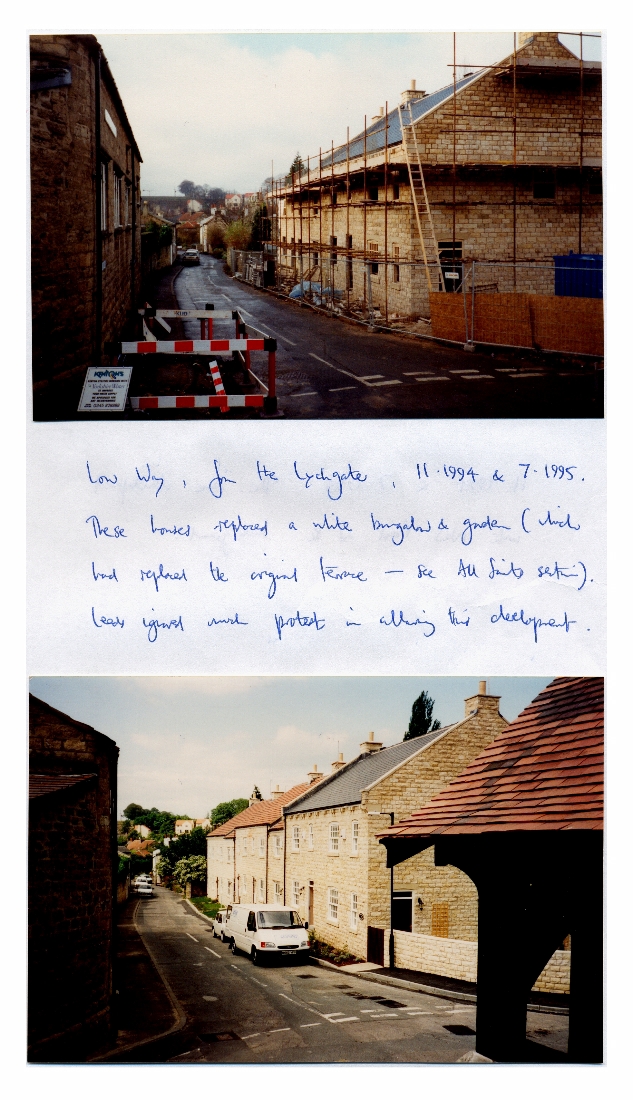 KENTONS
Yorkshire Water
Low Way, from the Lychgate, 11·1994 & 7·1995.
These houses replaced a white bungalow & garden (which
had replaced the original terrace — see All Saints section).
Leeds ignored much protest in allowing this development.